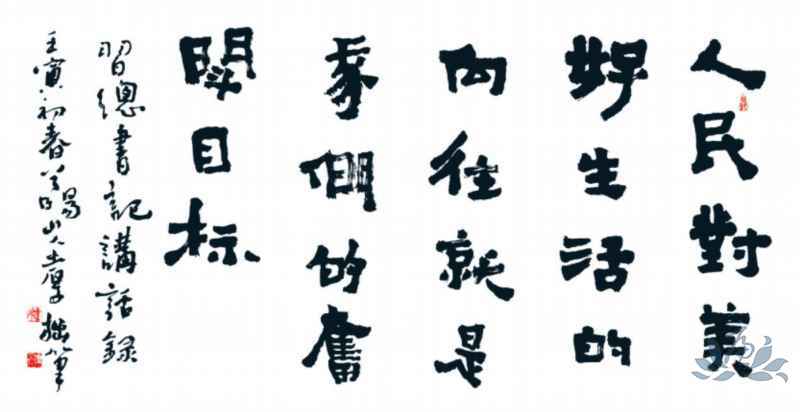 人民對美
好生活的
向往就是
我們的奮
鬭目标
習總書記講話録
壬寅初春